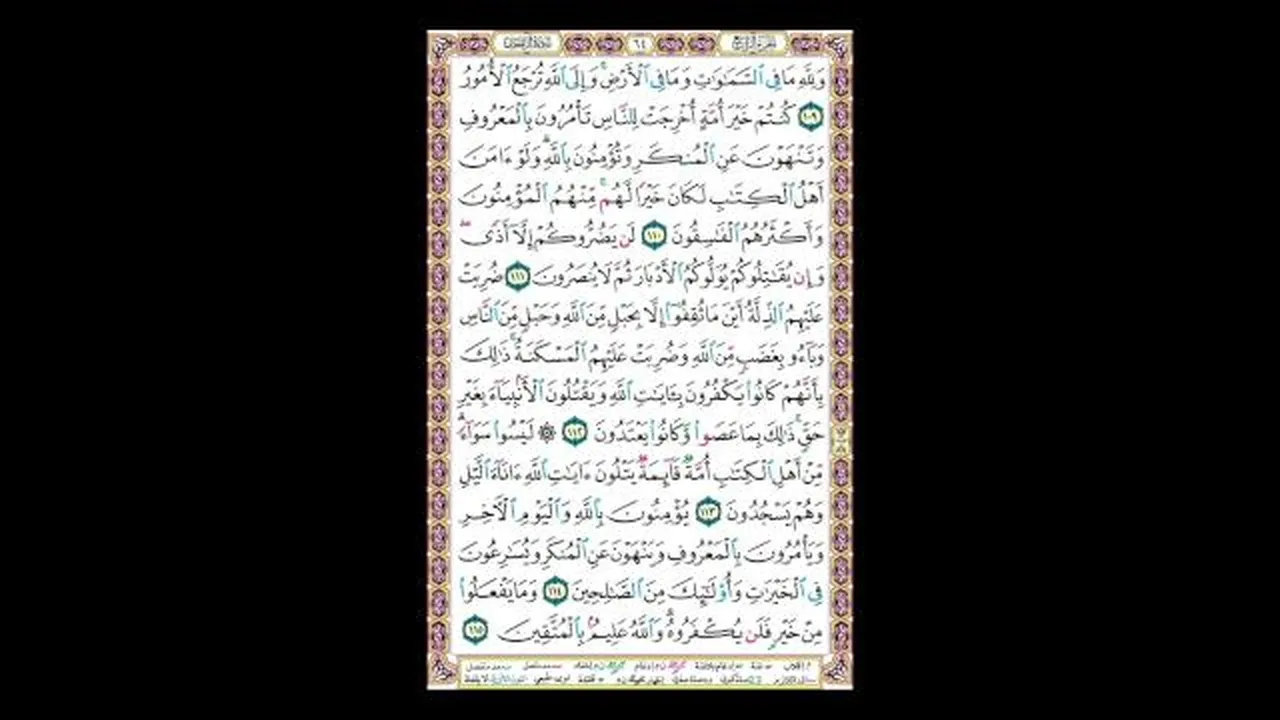 ٦٤
وَلِلَّهِ مَا فِي ٱلسَّمَٰوَٰتِ وَمَا فِي ٱلۡأَرۡضِۚ وَإِلَى ٱللَّهِ تُرۡجَعُ ٱلۡأُمُورُ
١٠٩ كُنتُمۡ خَيۡرَ أُمَّةٍ أُخۡرِجَتۡ لِلنَّاسِ تَأۡمُرُونَ بِٱلۡمَعۡرُوفِ
وَتَنۡهَوۡنَ عَنِ ٱلۡمُنكَرِ وَتُؤۡمِنُونَ بِٱللَّهِۗ وَلَوۡ ءَامَنَ
أَهۡلُ ٱلۡكِتَٰبِ لَكَانَ خَيۡرٗا لَّهُمۚ مِّنۡهُمُ ٱلۡمُؤۡمِنُونَ
وَأَكۡثَرُهُمُ ٱلۡفَٰسِقُونَ ١١٠ لَن يَضُرُّوكُمۡ إِلَّآ أَذٗىۖ
وَإِن يُقَٰتِلُوكُمۡ يُوَلُّوكُمُ ٱلۡأَدۡبَارَ ثُمَّ لَا يُنصَرُونَ ١١١ ضُرِبَتۡ
عَلَيۡهِمُ ٱلذِّلَّةُ أَيۡنَ مَا ثُقِفُوٓاْ إِلَّا بِحَبۡلٖ مِّنَ ٱللَّهِ وَحَبۡلٖ مِّنَ ٱلنَّاسِ
وَبَآءُو بِغَضَبٖ مِّنَ ٱللَّهِ وَضُرِبَتۡ عَلَيۡهِمُ ٱلۡمَسۡكَنَةُۚ ذَٰلِكَ
بِأَنَّهُمۡ كَانُواْ يَكۡفُرُونَ بِـَٔايَٰتِ ٱللَّهِ وَيَقۡتُلُونَ ٱلۡأَنۢبِيَآءَ بِغَيۡرِ
حَقّٖۚ ذَٰلِكَ بِمَا عَصَواْ وَّكَانُواْ يَعۡتَدُونَ ١١٢ ۞ لَيۡسُواْ سَوَآءٗۗ
مِّنۡ أَهۡلِ ٱلۡكِتَٰبِ أُمَّةٞ قَآئِمَةٞ يَتۡلُونَ ءَايَٰتِ ٱللَّهِ ءَانَآءَ ٱلَّيۡلِ
وَهُمۡ يَسۡجُدُونَ ١١٣ يُؤۡمِنُونَ بِٱللَّهِ وَٱلۡيَوۡمِ ٱلۡأٓخِرِ
وَيَأۡمُرُونَ بِٱلۡمَعۡرُوفِ وَيَنۡهَوۡنَ عَنِ ٱلۡمُنكَرِ وَيُسَٰرِعُونَ
فِي ٱلۡخَيۡرَٰتِ وَأُوْلَٰٓئِكَ مِنَ ٱلصَّٰلِحِينَ ١١٤ وَمَا يَفۡعَلُواْ
مِنۡ خَيۡرٖ فَلَن يُكۡفَرُوهُۗ وَٱللَّهُ عَلِيمُۢ بِٱلۡمُتَّقِينَ ١١٥